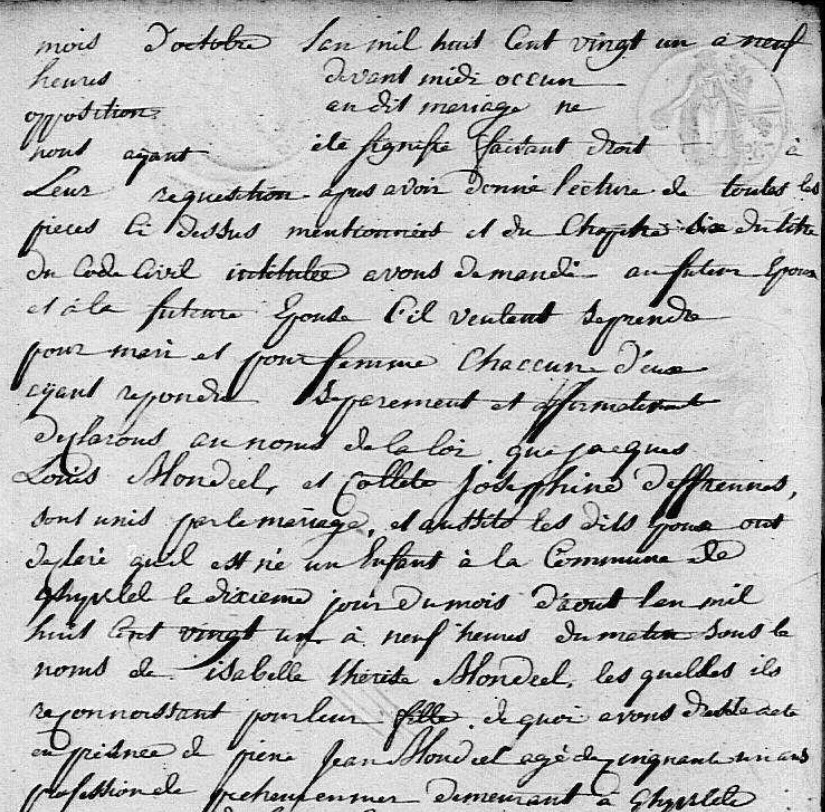 mois d'octobre lan mil huit Cent vingt un a neuf
heures devant midi occun
opposition au dit mariage ne
nous ayant été signifie faisant droit à
Leur requesition apres avoir donné lecture de toutes les
pieces Ci dessus mentionnées et du Chapitre six du titre
du Code Civil intitulée avons demandé au futur Epoux
et à la future Epouse S'il veulent se prendre
pour mari et pour femme Chaccune d'eux
ayant repondu separement et affirmativement
declarons au noms de la loi que jacques
Louis Blondeel, et Collete Josephine Deffrennes,
sont unis par le mariage, et aussitôt les dits Epoux ont
declaré quil est né un Enfant à la Commune de
Ghyvelde le dixieme jour du mois d'aout lan mil
huit Cent vingt un à neuf heures du matin sous le
noms de isabelle thérèse Blondeel, les quelles ils
reconnoissant pour leur fille, de quoi avons dressé acte
en présence de piere Jean Blondeel agé de cinquante un ans
profession de demeurant à Ghyvelde